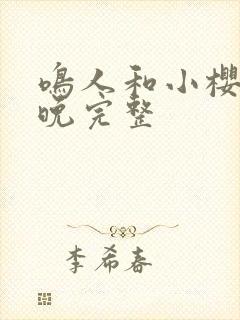 鳴人和小櫻
晚完整
李希春